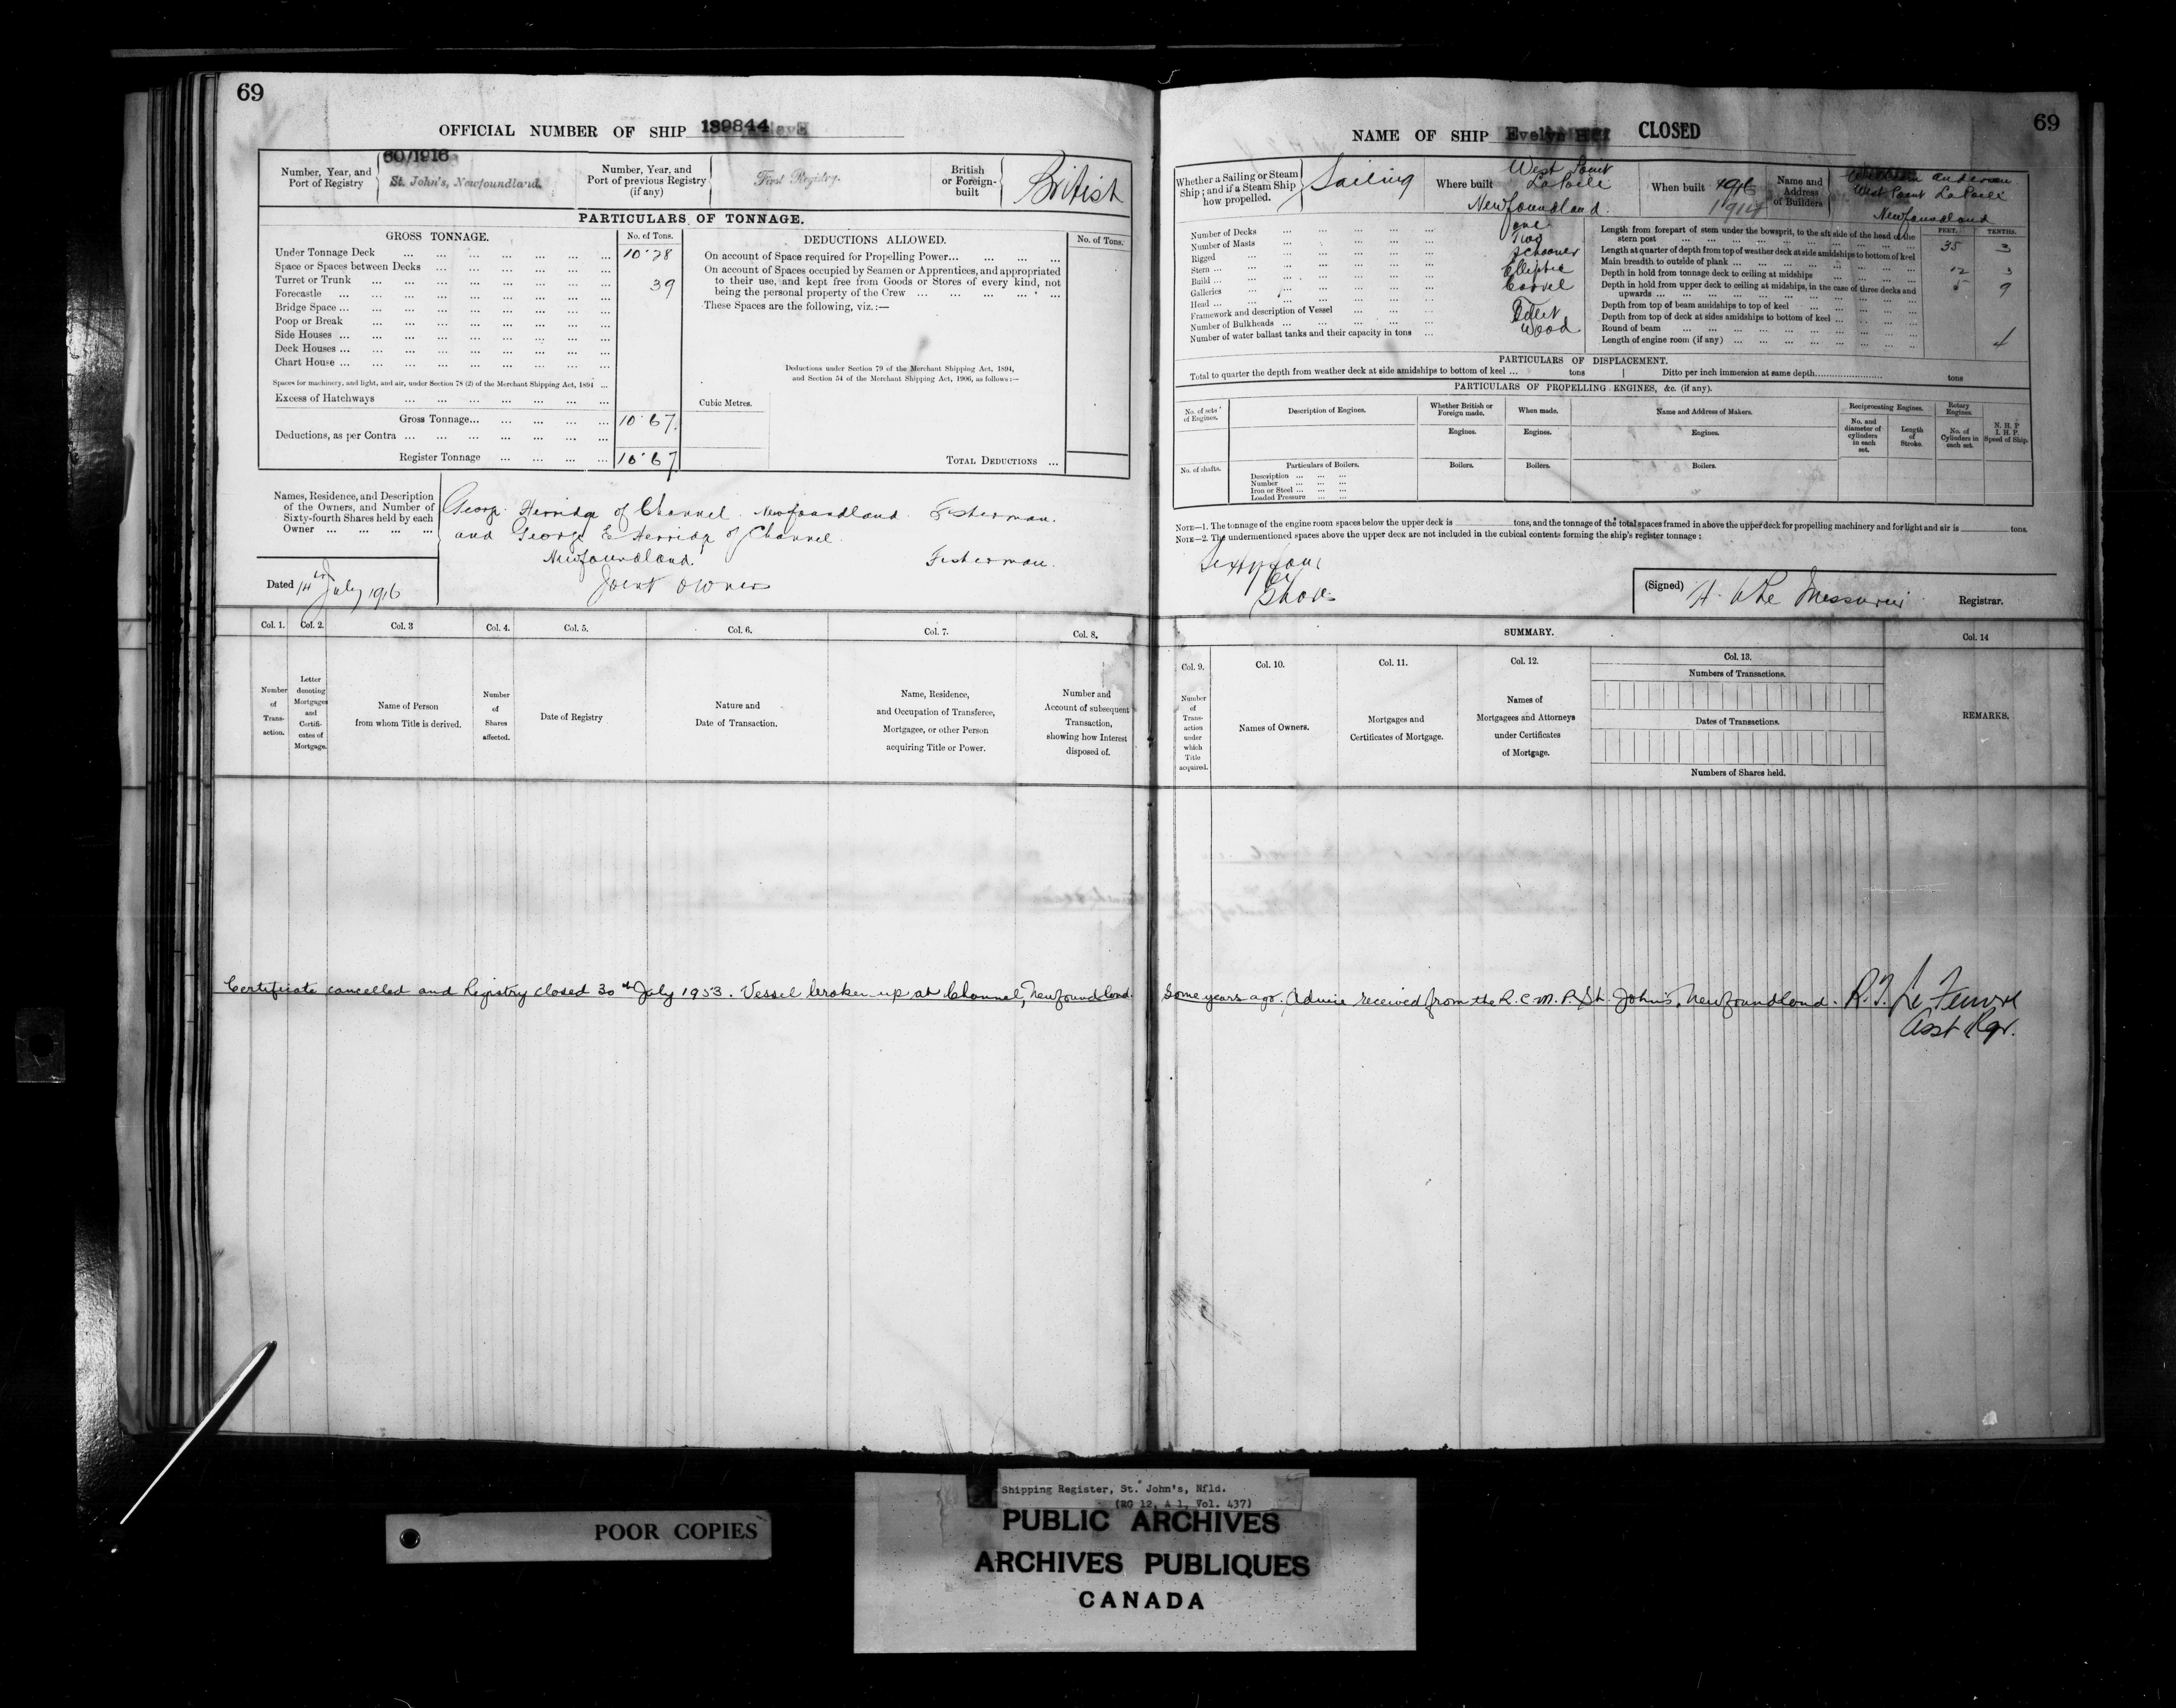 69
OFFICIAL NUMBER OF SHIP 139844
Number, Year, and Port of Registry
60/1916
St. John's, Newfoundland.
Number, Year, and Port of previous Registry (if any)
First Registry.
British or Foreign-built
British
PARTICULARS OF TONNAGE.
GROSS TONNAGE.
No. of Tons.
Under Tonnage Deck ... 10.28
Space or Spaces between Decks ...
Turret or Trunk ... 39
Forecastle ...
Bridge Space ...
Poop or Break
Side Houses ...
Deck Houses ...
Chart House ...
Spaces for machinery, and light, and air, under Section 78 (2) of the Merchant Shipping Act, 1894 ...
Excess of Hatchways ...
Gross Tonnage... 10.67
Deductions, as per Contra ...
Register Tonnage ... 10.67
DEDUCTIONS ALLOWED.
No. of Tons.
On account of Space required for Propelling Power...
On account of Spaces occupied by Seamen or Apprentices, and appropriated
to their use, and kept free from Goods or Stores of every kind, not
being the personal property of the Crew ...
These Spaces are the following, viz.:—
Deductions under Section 79 of the Merchant Shipping Act, 1894,
and Section 54 of the Merchant Shipping Act, 1906, as follows:—
Cubic Metres.
TOTAL DEDUCTIONS ...
Names, Residence, and Description
of the Owners, and Number of
Sixty-fourth Shares held by each
Owner ...
George Herridge of Channel Newfoundland Fisherman.
and George E Herridge of Channel
Newfoundland Fisherman.
Joint owners
Dated 14th July 1916
Col. 1. Col. 2. Col. 3 Col. 4. Col. 5. Col. 6. Col. 7. Col. 8.
Number of Transaction.
Letter denoting Mortgages and Certificates of Mortgage.
Name of Person from whom Title is derived.
Number of Shares affected.
Date of Registry
Nature and Date of Transaction.
Name, Residence, and Occupation of Transferee, Mortgagee, or other Person acquiring Title or Power.
Number and Account of subsequent Transaction, showing how Interest disposed of.
69
NAME OF SHIP Evelyn CLOSED
Whether a Sailing or Steam Ship; and if a Steam Ship how propelled.
Sailing
Where built
West Point
LaPoile
Newfoundland.
When built
1914
Name and Address of Builders
William Anderson
West Point LaPoile
Newfoundland
Number of Decks ... one
Number of Masts ... Two
Rigged ... Schooner
Stern ... Elliptic
Build ... Carvel
Galleries ...
Head ...
Framework and description of Vessel ... Wood
Number of Bulkheads ...
Number of water ballast tanks and their capacity in tons ...
FEET. TENTHS.
Length from forepart of stem under the bowsprit, to the aft side of the head of the
stern post ... 35 3
Length at quarter of depth from top of weather deck at side amidships to bottom of keel
Main breadth to outside of plank ... 12 3
Depth in hold from tonnage deck to ceiling at midships ... 5 9
Depth in hold from upper deck to ceiling at midships, in the case of three decks and
upwards ...
Depth from top of beam amidships to top of keel ...
Depth from top of deck at sides amidships to bottom of keel ...
Round of beam ... 4
Length of engine room (if any) ...
PARTICULARS OF DISPLACEMENT.
Total to quarter the depth from weather deck at side amidships to bottom of keel ... tons Ditto per inch immersion at same depth... tons
PARTICULARS OF PROPELLING ENGINES, &c. (if any).
No. of sets of Engines.
Description of Engines.
Whether British or Foreign made.
When made.
Name and Address of Makers.
Reciprocating Engines.
Rotary Engines.
No. and diameter of cylinders in each set.
Length of Stroke.
No. of Cylinders in each set.
N. H. P
I. H. P.
Speed of Ship.
Engines. Engines. Engines.
No. of shafts.
Particulars of Boilers.
Description ...
Number ...
Iron or Steel ...
Loaded Pressure ...
Boilers. Boilers. Boilers.
NOTE—1. The tonnage of the engine room spaces below the upper deck is tons, and the tonnage of the total spaces framed in above the upper deck for propelling machinery and for light and air is tons.
NOTE—2. The undermentioned spaces above the upper deck are not included in the cubical contents forming the ship's register tonnage:
(Signed) H. W Le Messurier Registrar.
SUMMARY.
Col. 9. Col. 10. Col. 11. Col. 12. Col. 13. Col. 14
Number of Transaction under which Title acquired.
Names of Owners.
Mortgages and Certificates of Mortgage.
Names of Mortgagees and Attorneys under Certificates of Mortgage.
Numbers of Transactions.
Dates of Transactions.
Numbers of Shares held.
REMARKS.
Certificate cancelled and Registry closed 30th July 1953. Vessel broken up at Channel, Newfoundland. some years ago. Advice received from the R.C.M.P. St. John's, Newfoundland. R.F. Le Feuvre
Asst Rgr.
POOR COPIES
Shipping Register, St. John's, Nfld.
(RG 12, A 1, Vol. 437)
PUBLIC ARCHIVES
ARCHIVES PUBLIQUES
CANADA